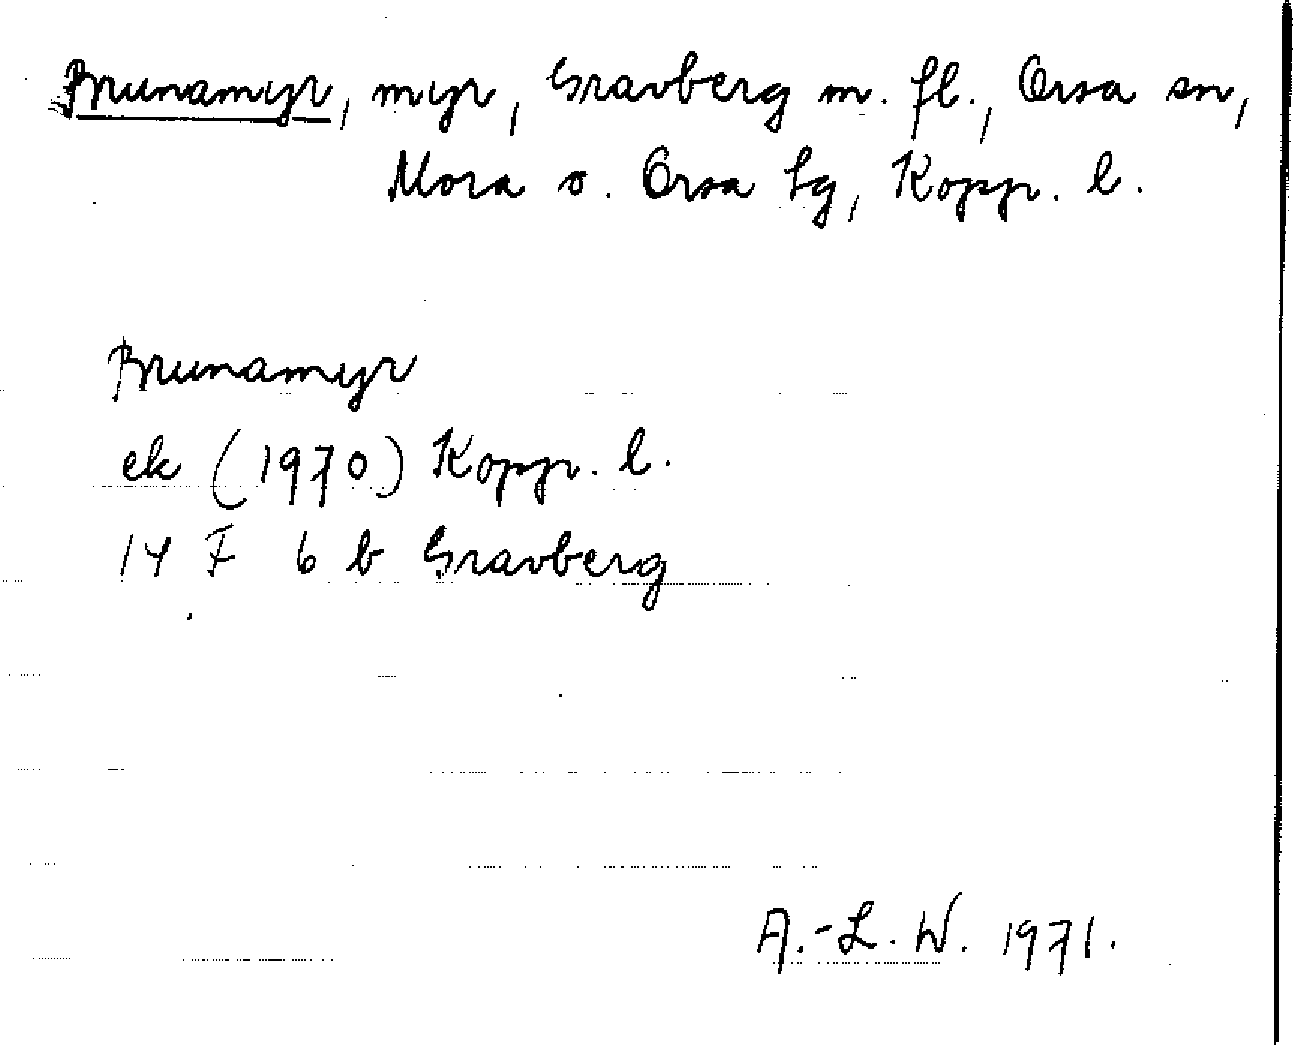 Brunamyr, myr, Gravberg m. fl., Orsa sn,
Mora o. Orsa tg, Kopp. l.
Brunamyr
ek (1970) Kopp. l.
14 F 6 b Gravberg
A.-L. W. 1971.